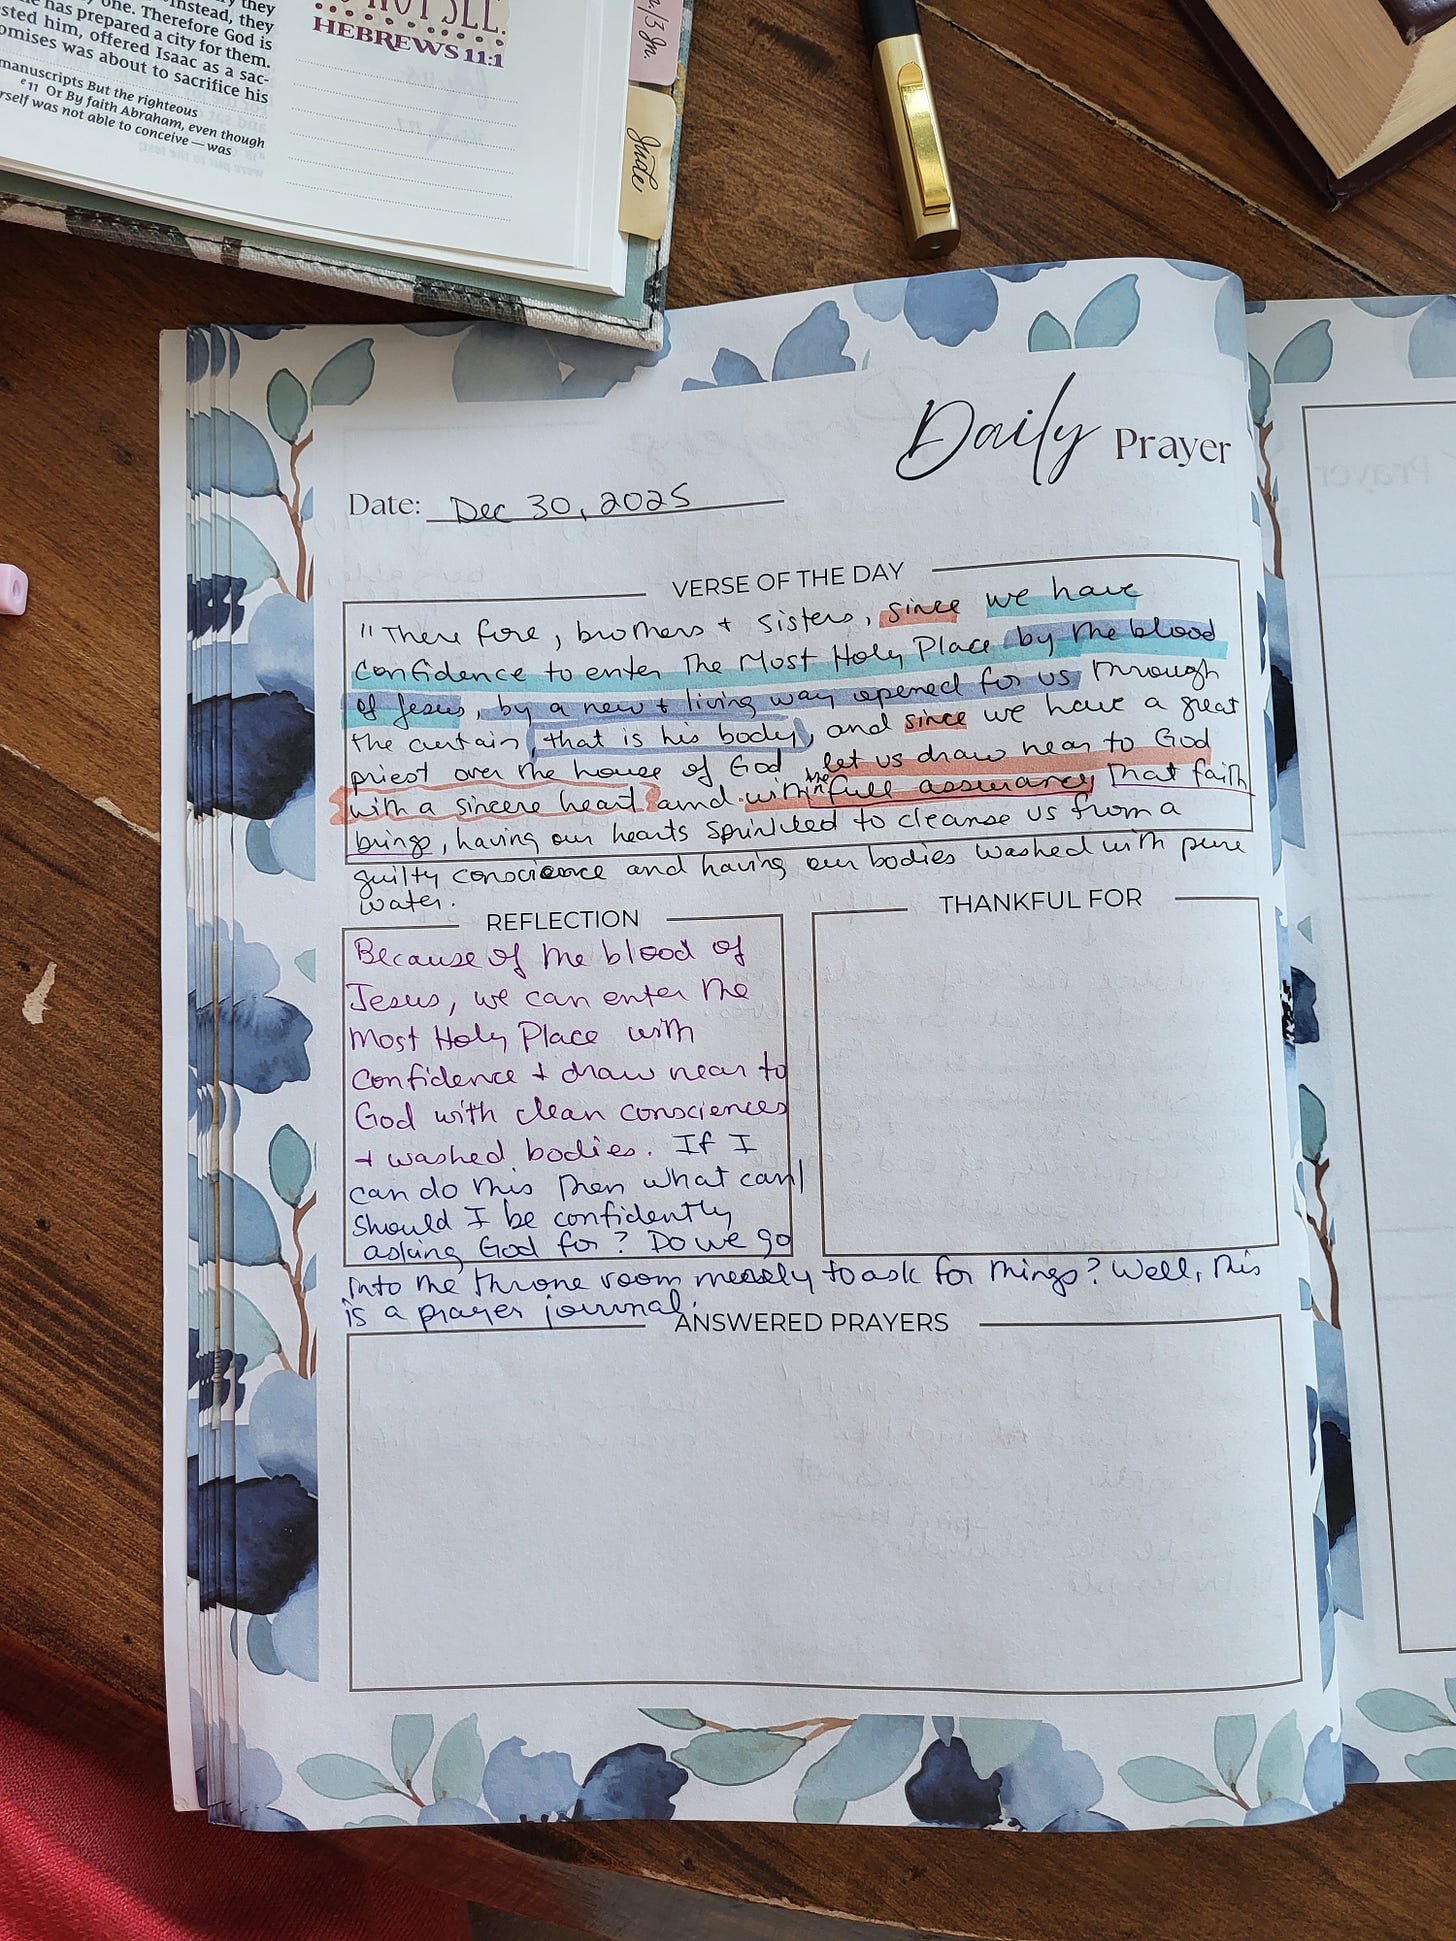 they
y one. Instead, they
has prepared a city for them. Therefore God is
sted him, offered Isaac as a sac-
omises was about to sacrifice his
manuscripts But the righteous
e11 Or By faith Abraham, even though
rself was not able to conceive — was
NOT SEE.
HEBREWS 11:1
/3 Jn.
Jude
Daily Prayer
Date: Dec 30, 2025
VERSE OF THE DAY
"There fore, brothers + sisters, since we have
confidence to enter the Most Holy Place by the blood
of Jesus, by a new + living way opened for us through
the curtain, that is his body, and since we have a great
priest over the house of God, let us draw near to God
with a sincere heart and with the full assurance that faith
brings, having our hearts sprinkled to cleanse us from a
guilty conscience and having our bodies washed with pure
water.
REFLECTION
Because of the blood of
Jesus, we can enter the
Most Holy Place with
confidence + draw near to
God with clean consciences
+ washed bodies. If I
can do this then what can/
should I be confidently
asking God for? Do we go
into the throne room merely to ask for things? Well, this
is a prayer journal.
THANKFUL FOR
ANSWERED PRAYERS